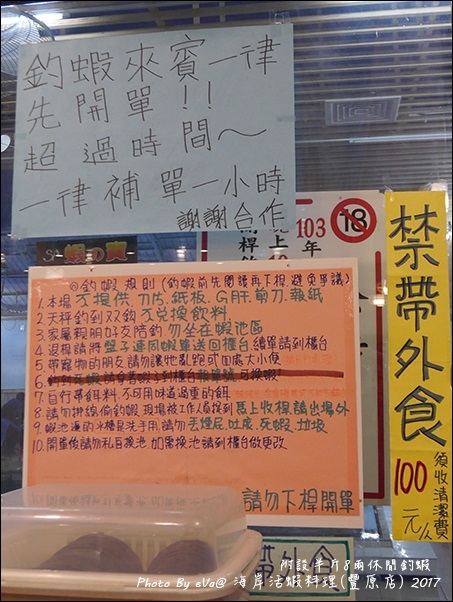 釣蝦來賓一律
先開單!!
超過時間～
一律補單一小時
謝謝合作
103
年
18
禁帶外食
100
元/人
須收清潔費
◎釣蝦規則(釣蝦前先閱讀再下桿,避免爭議)
1.本場不提供刀片.紙板.G肝.剪刀.報紙
2.天秤釣到双釣不兌換飲料
3.家屬親朋好友陪釣,勿坐在蝦池區
4.退桿請將盤子連同蝦單送回櫃台.續單請到櫃台
5.帶寵物的朋友請勿讓牠亂跑或如處大小便
7.自行帶餌料.不可用味道過重的餌
8.請勿排線偷釣蝦 現場被工作人員捉到馬上收桿,請出場外
9.蝦池邊的水槽是洗手用,請勿丟煙尼.吐痰.死蝦.垃圾
10.開單後請勿私自換池.如需換池請到櫃台做更改
請勿下桿開單
帶外食
附設半斤8兩休閒釣蝦
Photo By eVa@ 海岸活蝦料理(豐原店) 2017